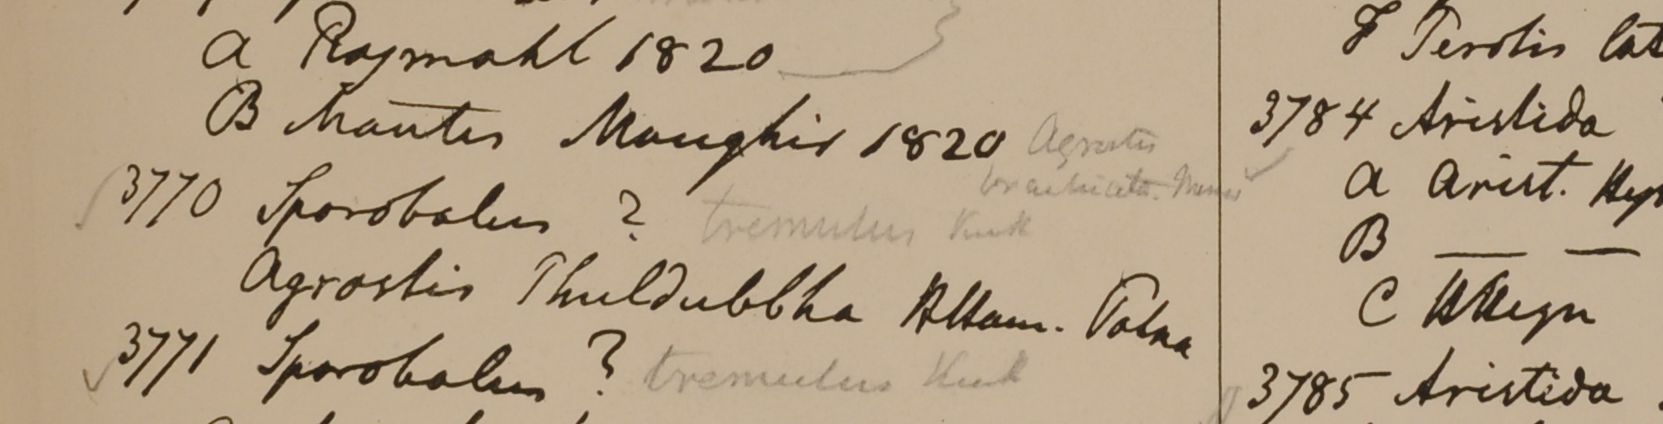 a Rajmahl 1820
B Montes Monghir 1820 Agrostis
3770 Sporobolus ? tremulus Kunth
Agrostis Thuldubbha HHam. Patna
3771 Sporobolus ? tremulus Kunth
F Perotis lat
3784 Aristida
a Arist. Hys
B — —
C H Heyn
3785 Aristida